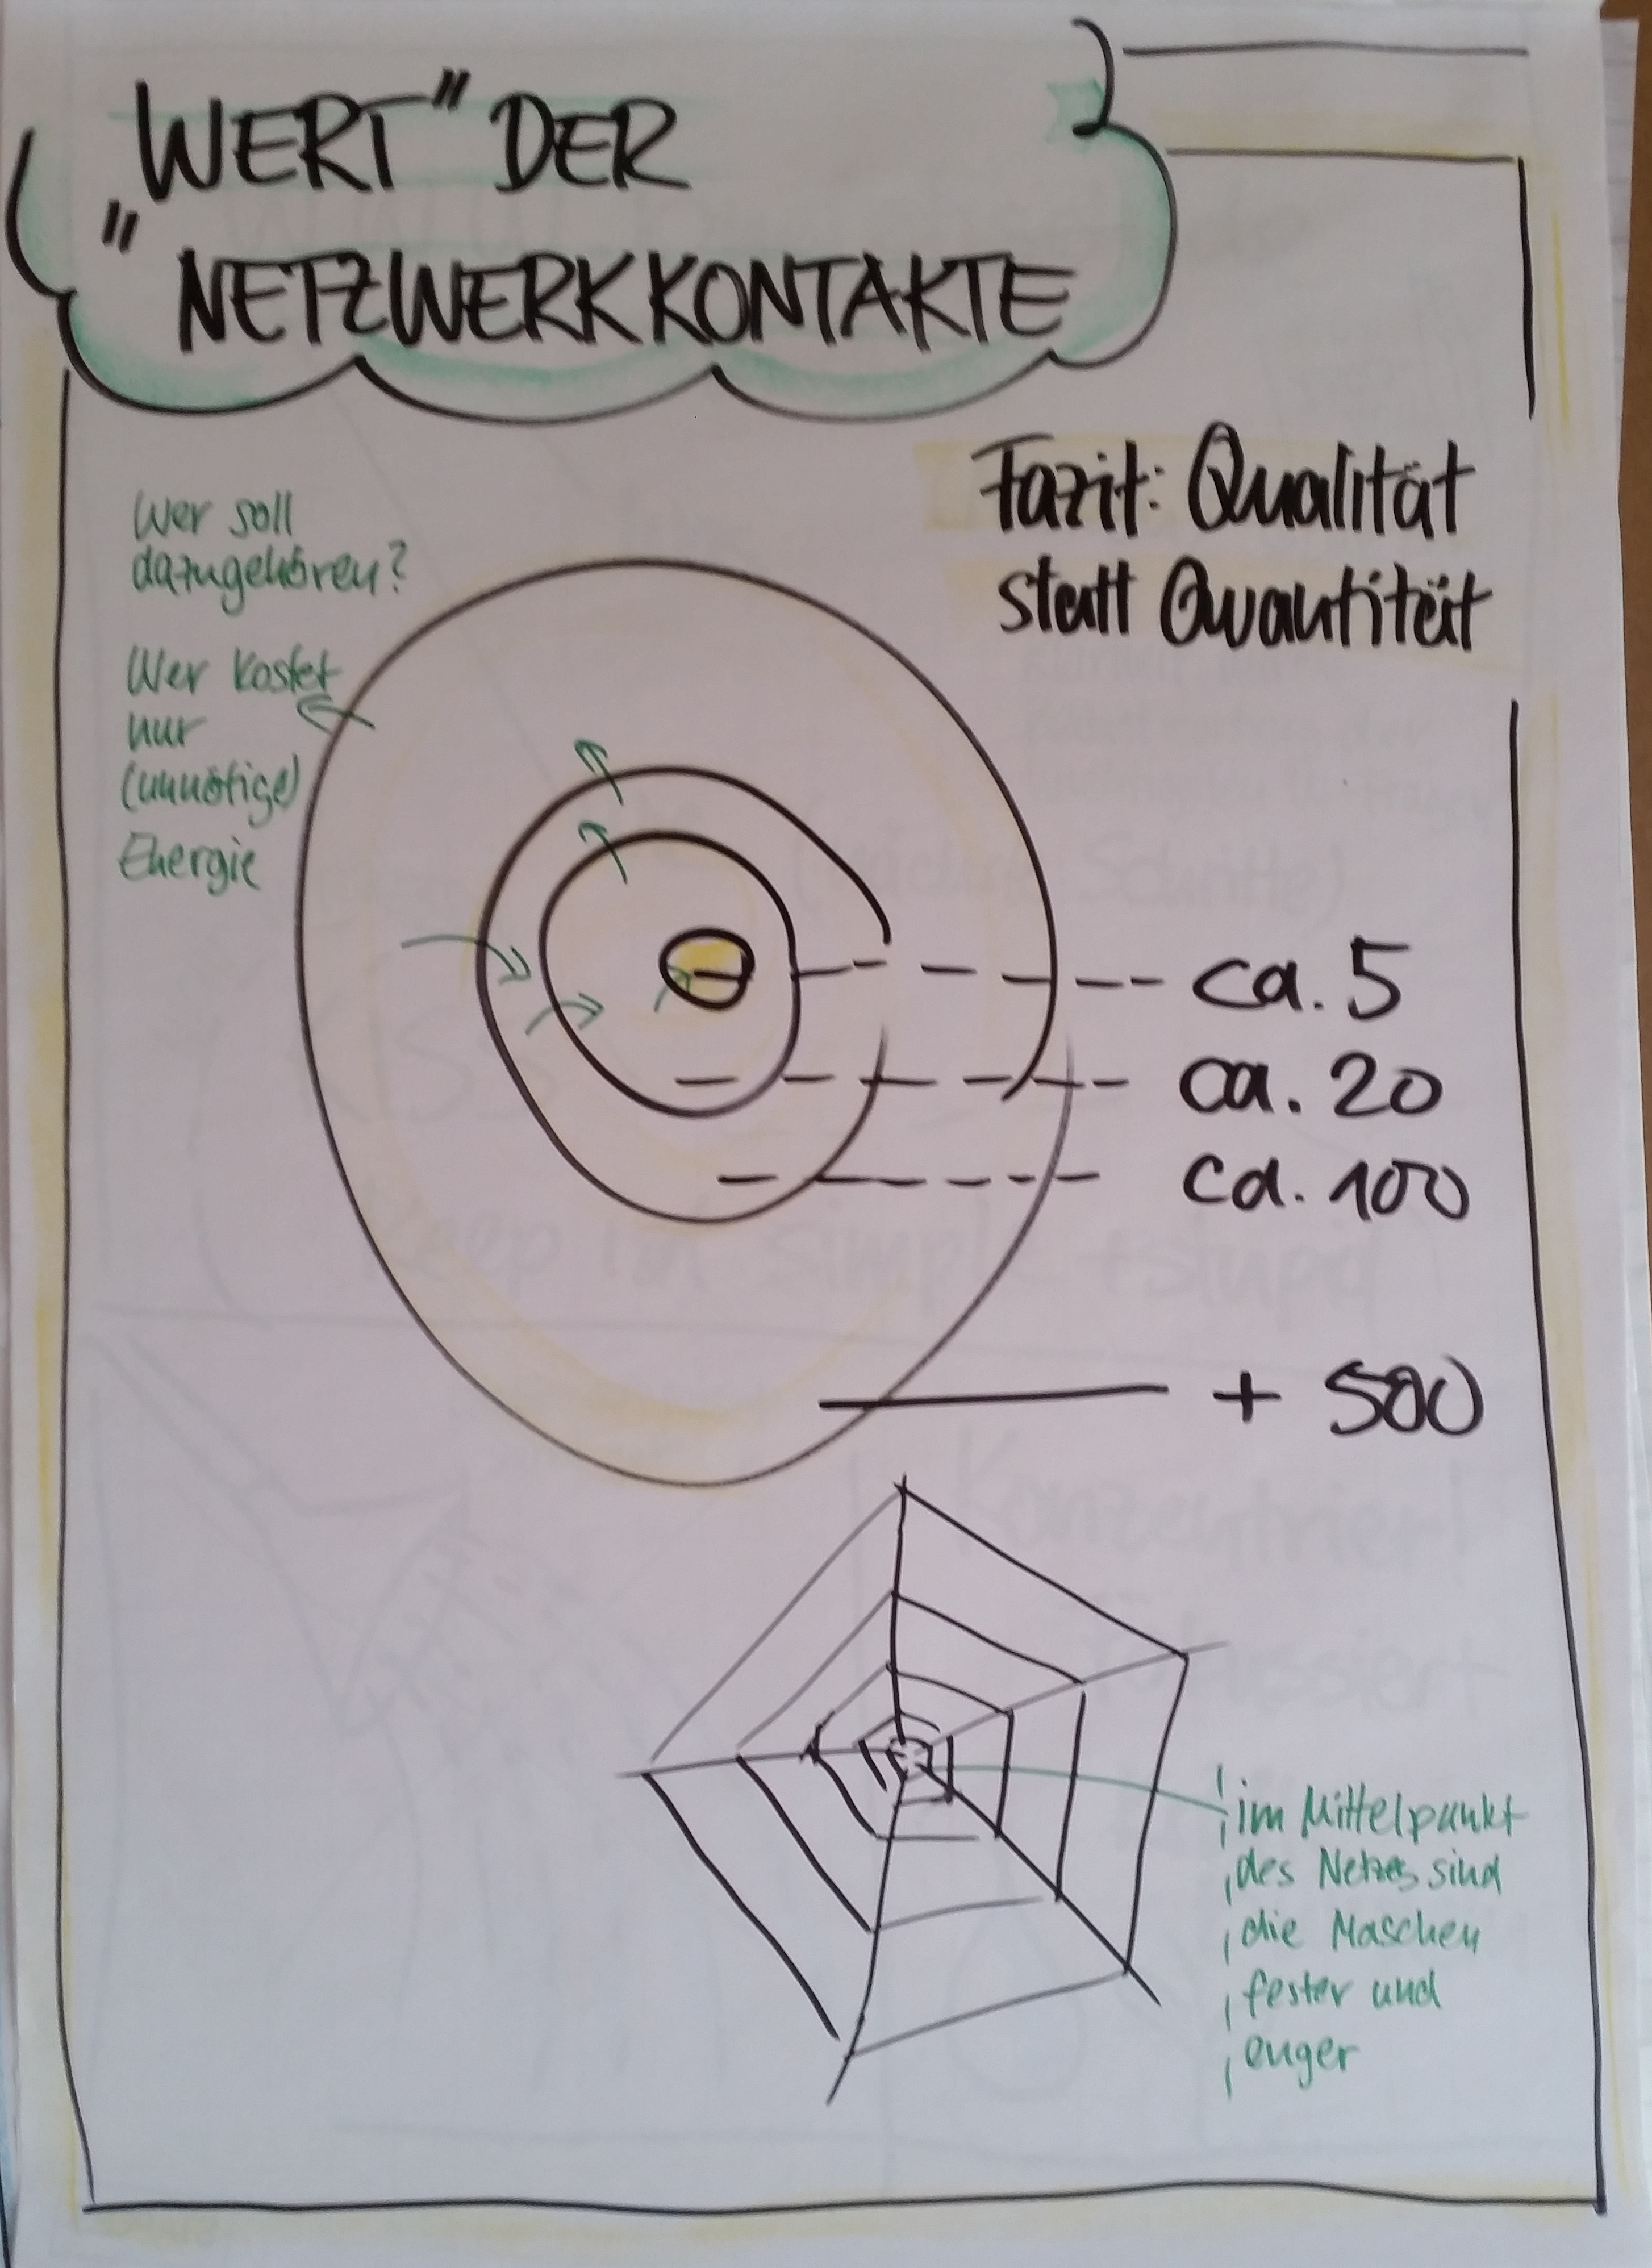 „WERT" DER
NETZWERKKONTAKTE
Fazit: Qualität
statt Quantität
Wer soll
dazugehören?
Wer kostet
nur
(unnötige)
Energie
ca. 5
ca. 20
ca. 100
+ 500
im Mittelpunkt
des Netzes sind
die Maschen
fester und
enger